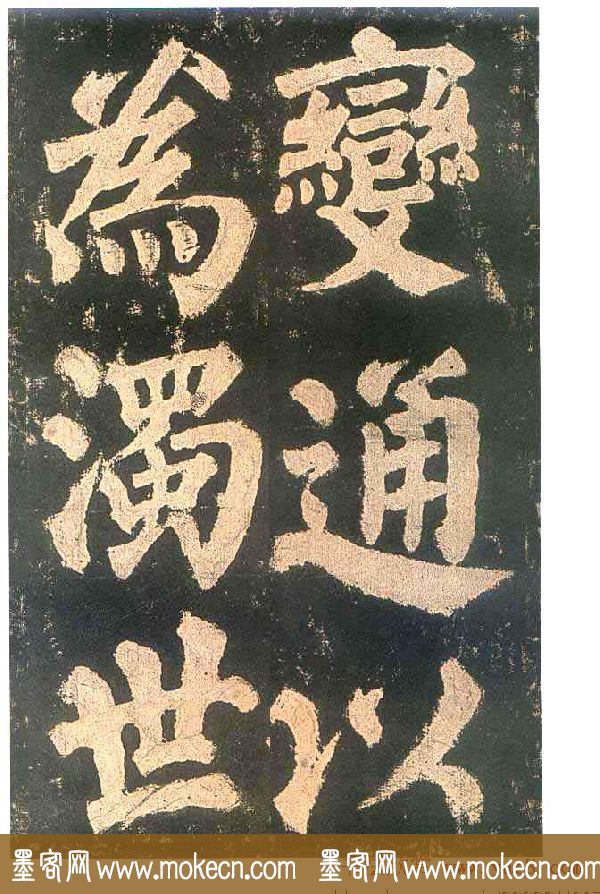 變通以
為濁世
墨客网 www.mokecn.com 墨客网 www.mokecn.com